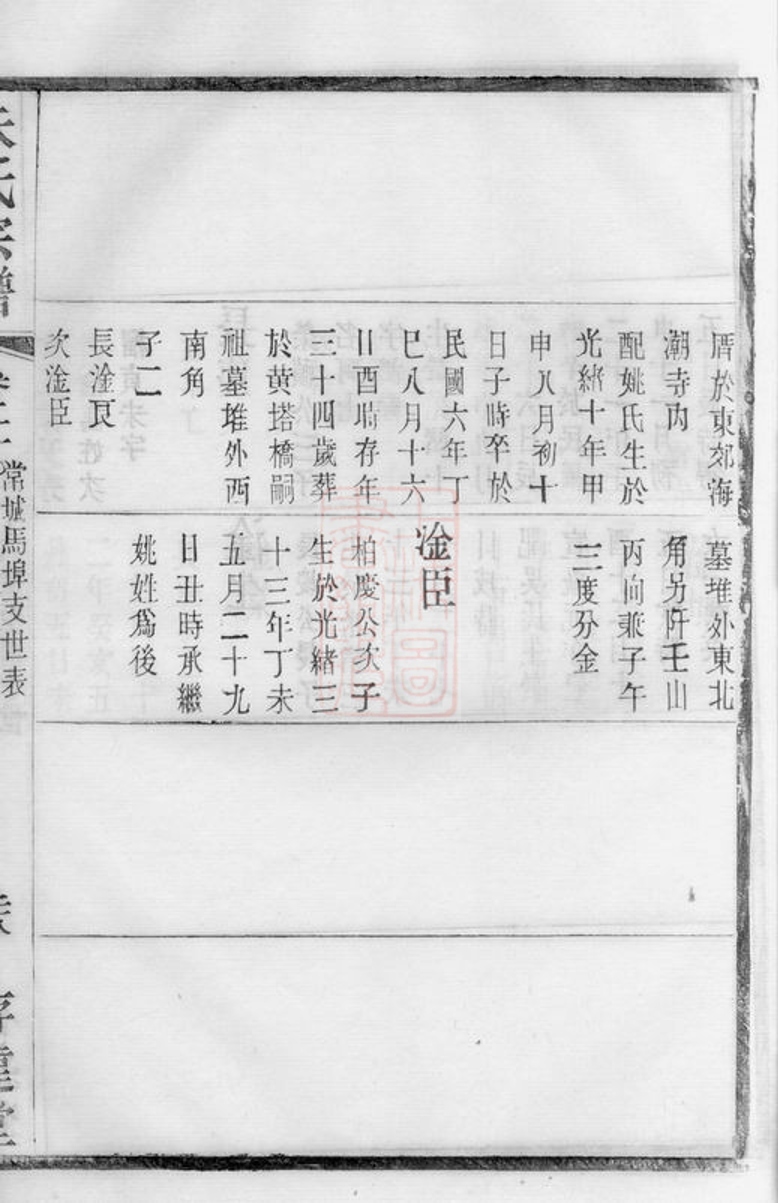 厝於東郊海
潮寺內
配姚氏生於
光緒十年甲
申八月初十
日子時卒於
民國六年丁
巳八月十六
日酉時存年
三十四歲葬
於黄塔橋嗣
祖墓堆外西
南角
子二
長淦良
次淦臣
墓堆外東北
角另阡壬山
丙向兼子午
三度分金
淦臣
柏慶公次子
生於光緒三
十三年丁未
五月二十九
日丑時承繼
姚姓爲後
氏宗譜
常城馬埠支世表